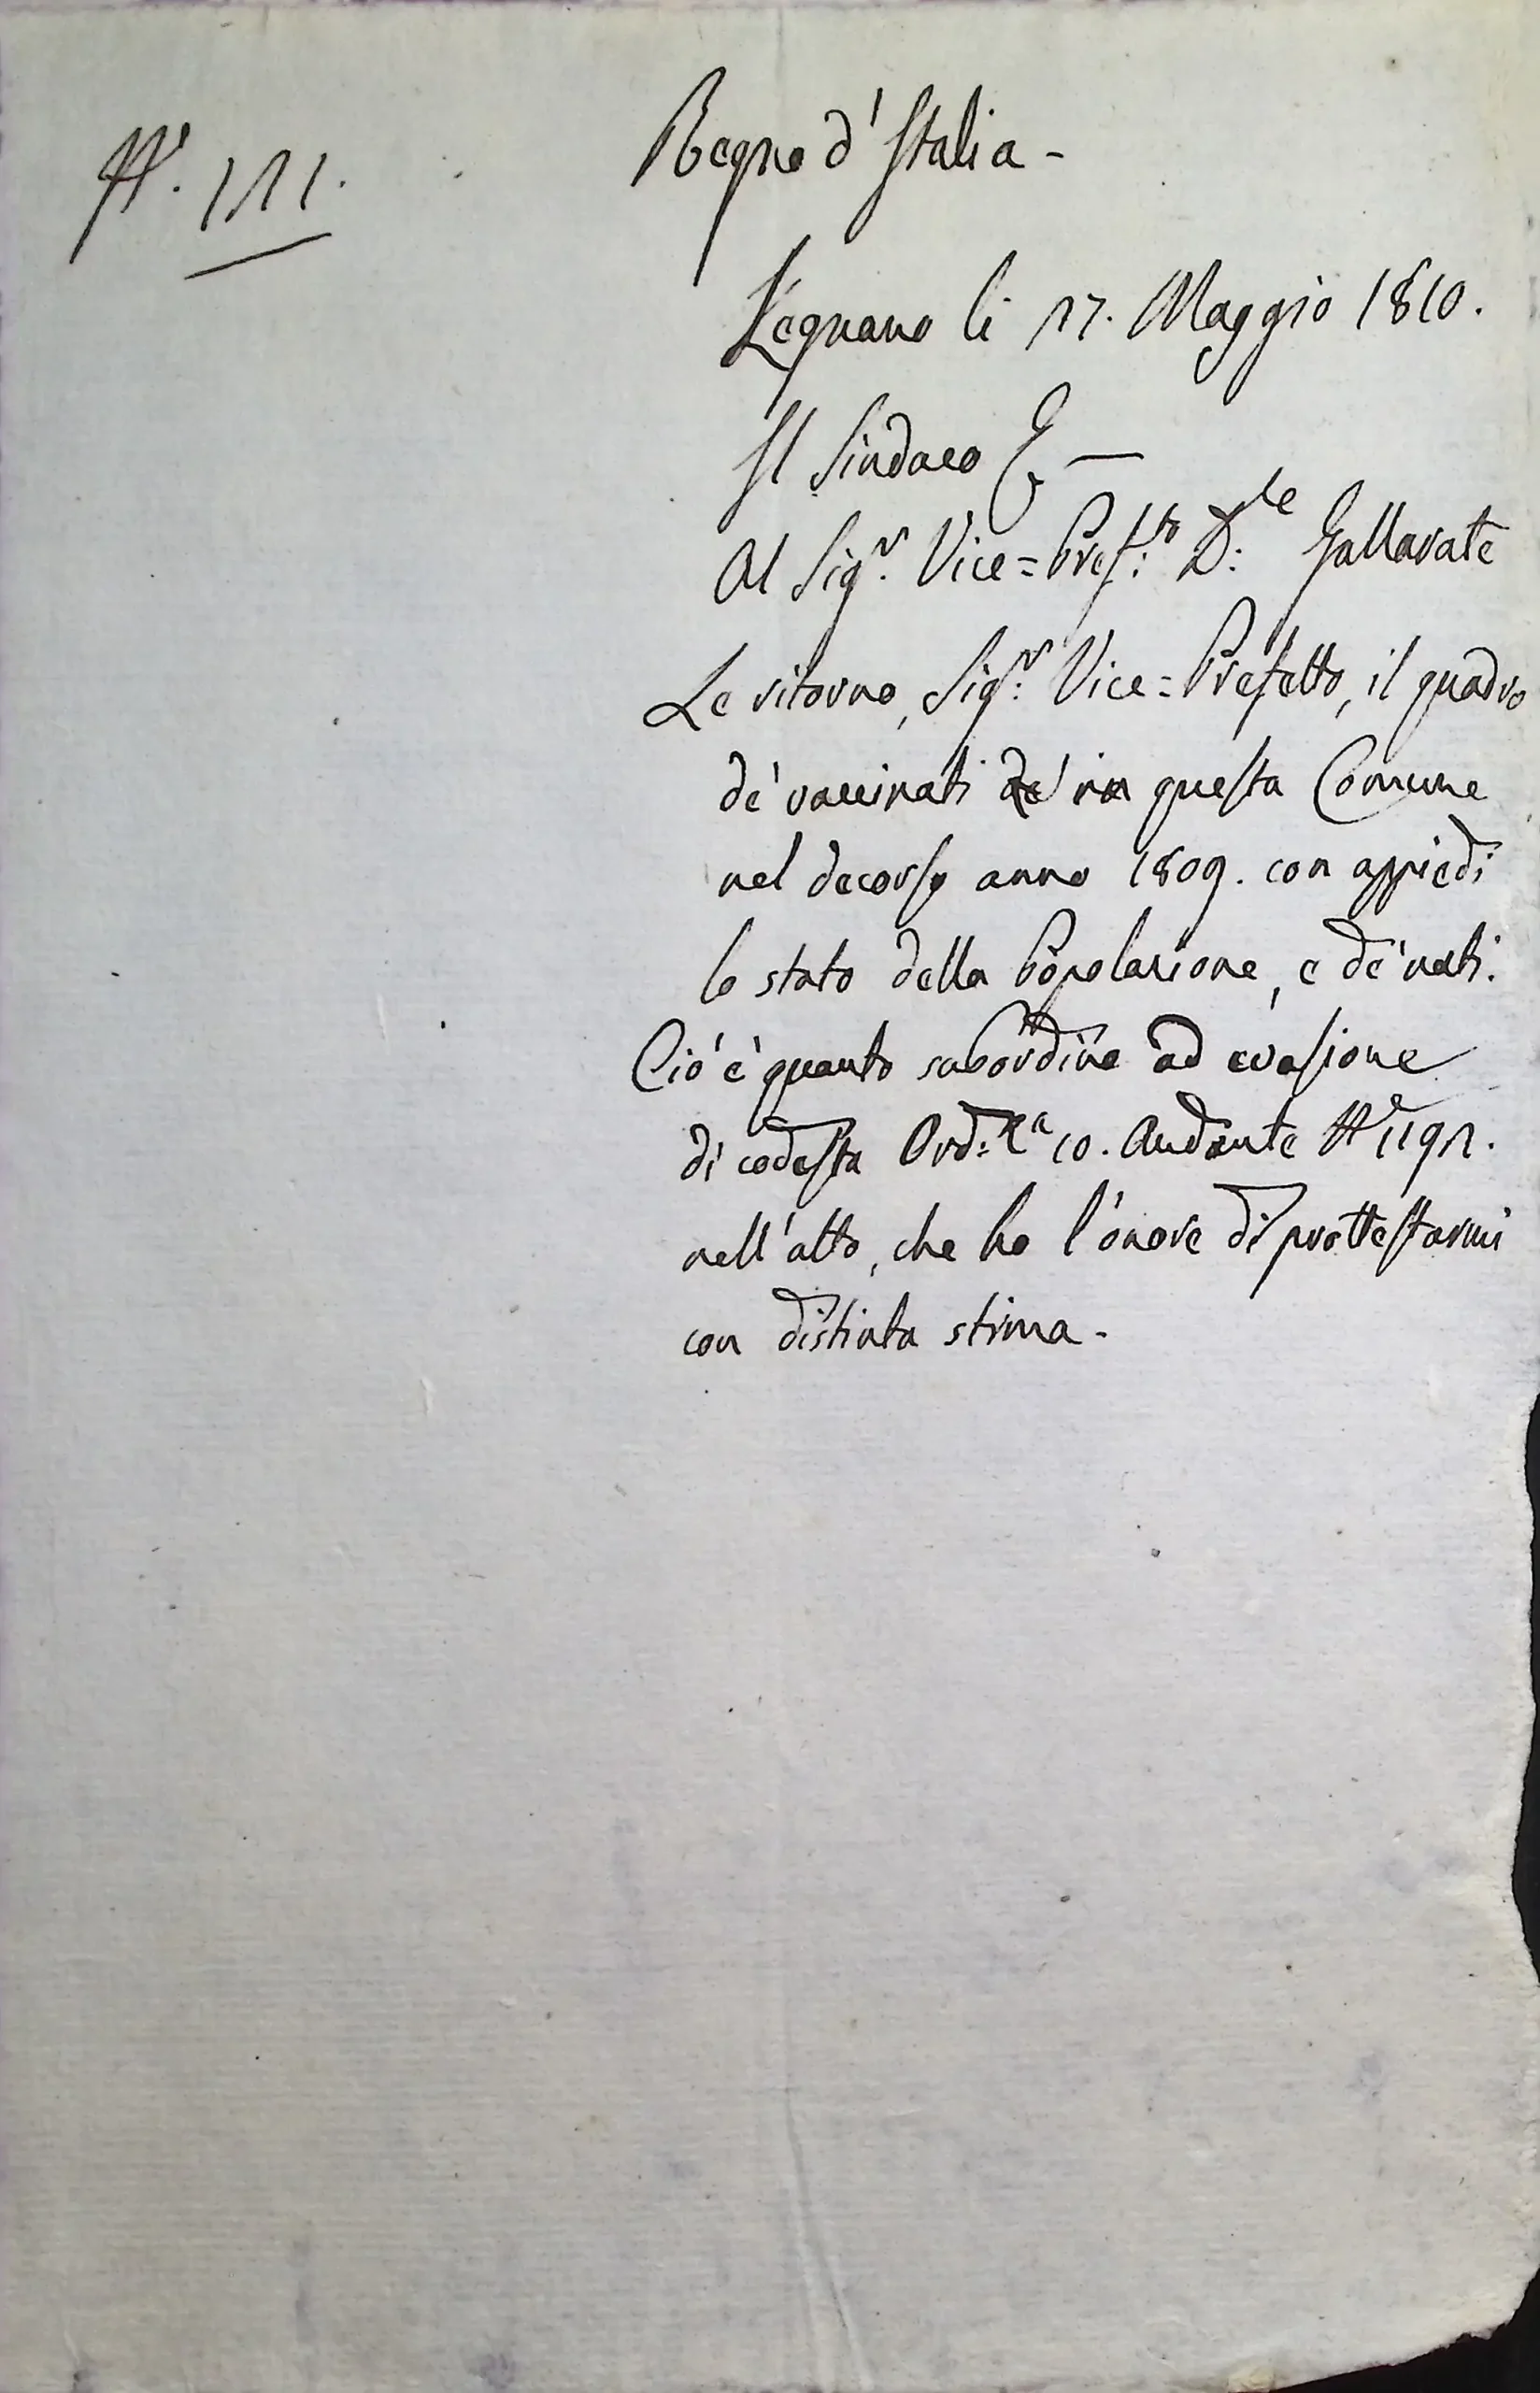 N.° 121.
Regno d'Italia -
Legnano li 17. Maggio 1810.
Il Sindaco
Al Sig.r Vice=Pref:to D:le Gallarate
Le ritorno, Sig:r Vice=Prefetto, il quadro
de' vaccinati in questa Comune
nel decorso anno 1809. con appiedi
lo stato della Popolazione, e de' nati.
Ciò è quanto subordino ad evasione
di codesta Ord:za 10. Andante N.°
nell'atto, che ho l'onore di prottestarmi
con distinta stima -